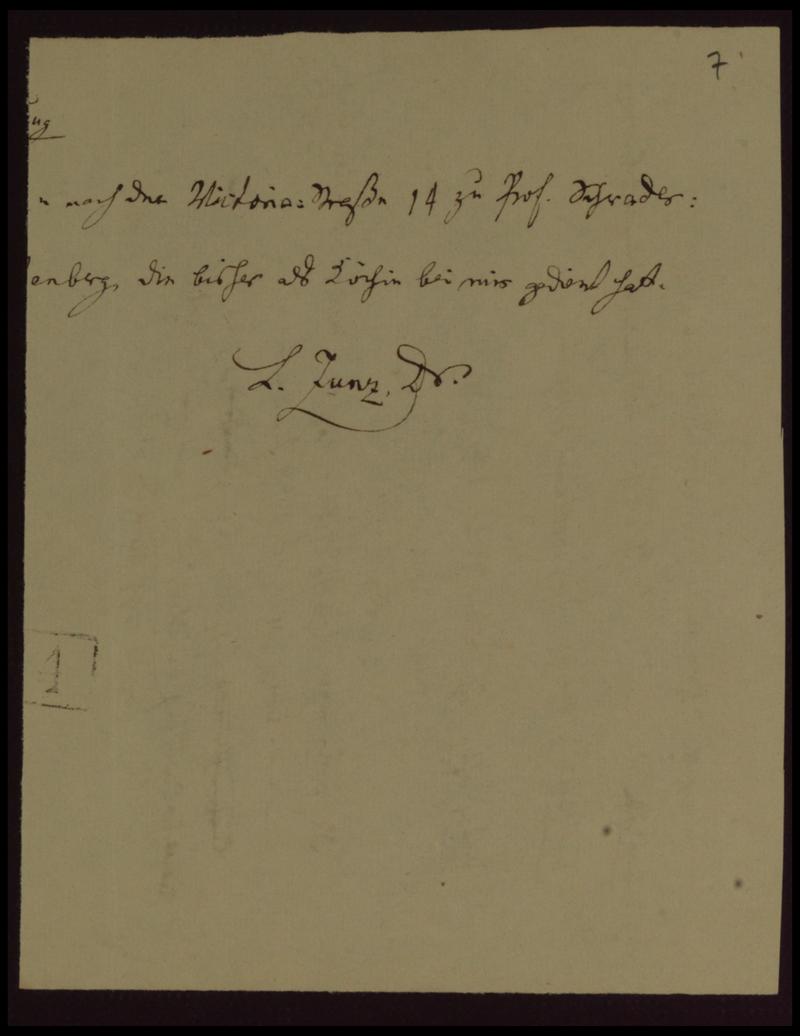 7
ug
n nach der Victoria=Straße 14 zu Prof. Schrader:
enberg, die bisher als Köchin bei mir gedient hat.
L. Zunz, Dr.
1